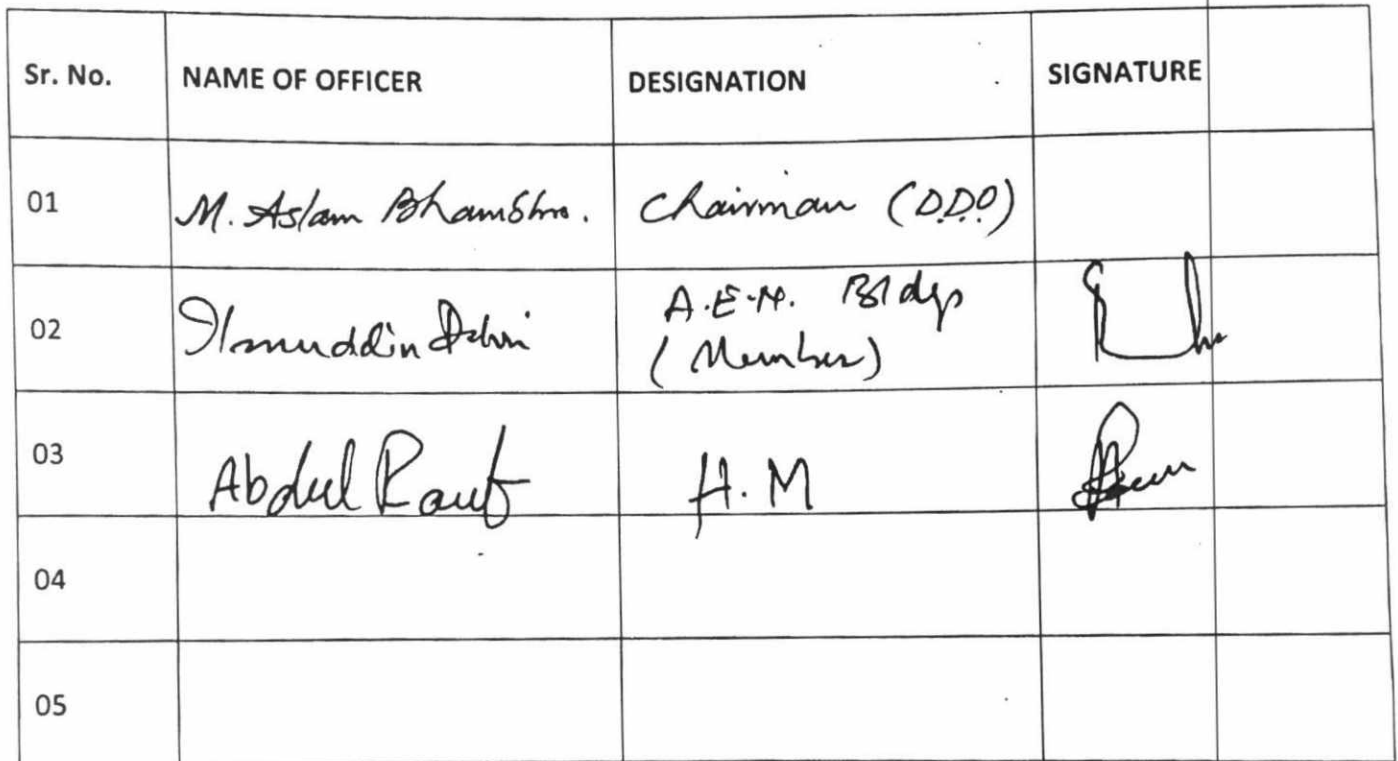 Sr. No. NAME OF OFFICER DESIGNATION SIGNATURE
01 M. Aslam Bhambhro. Chairman (D.D.O)
02 Ilmuddin A.E.N. Bldgs
(Member)
03 Abdul Rauf H.M
04
05